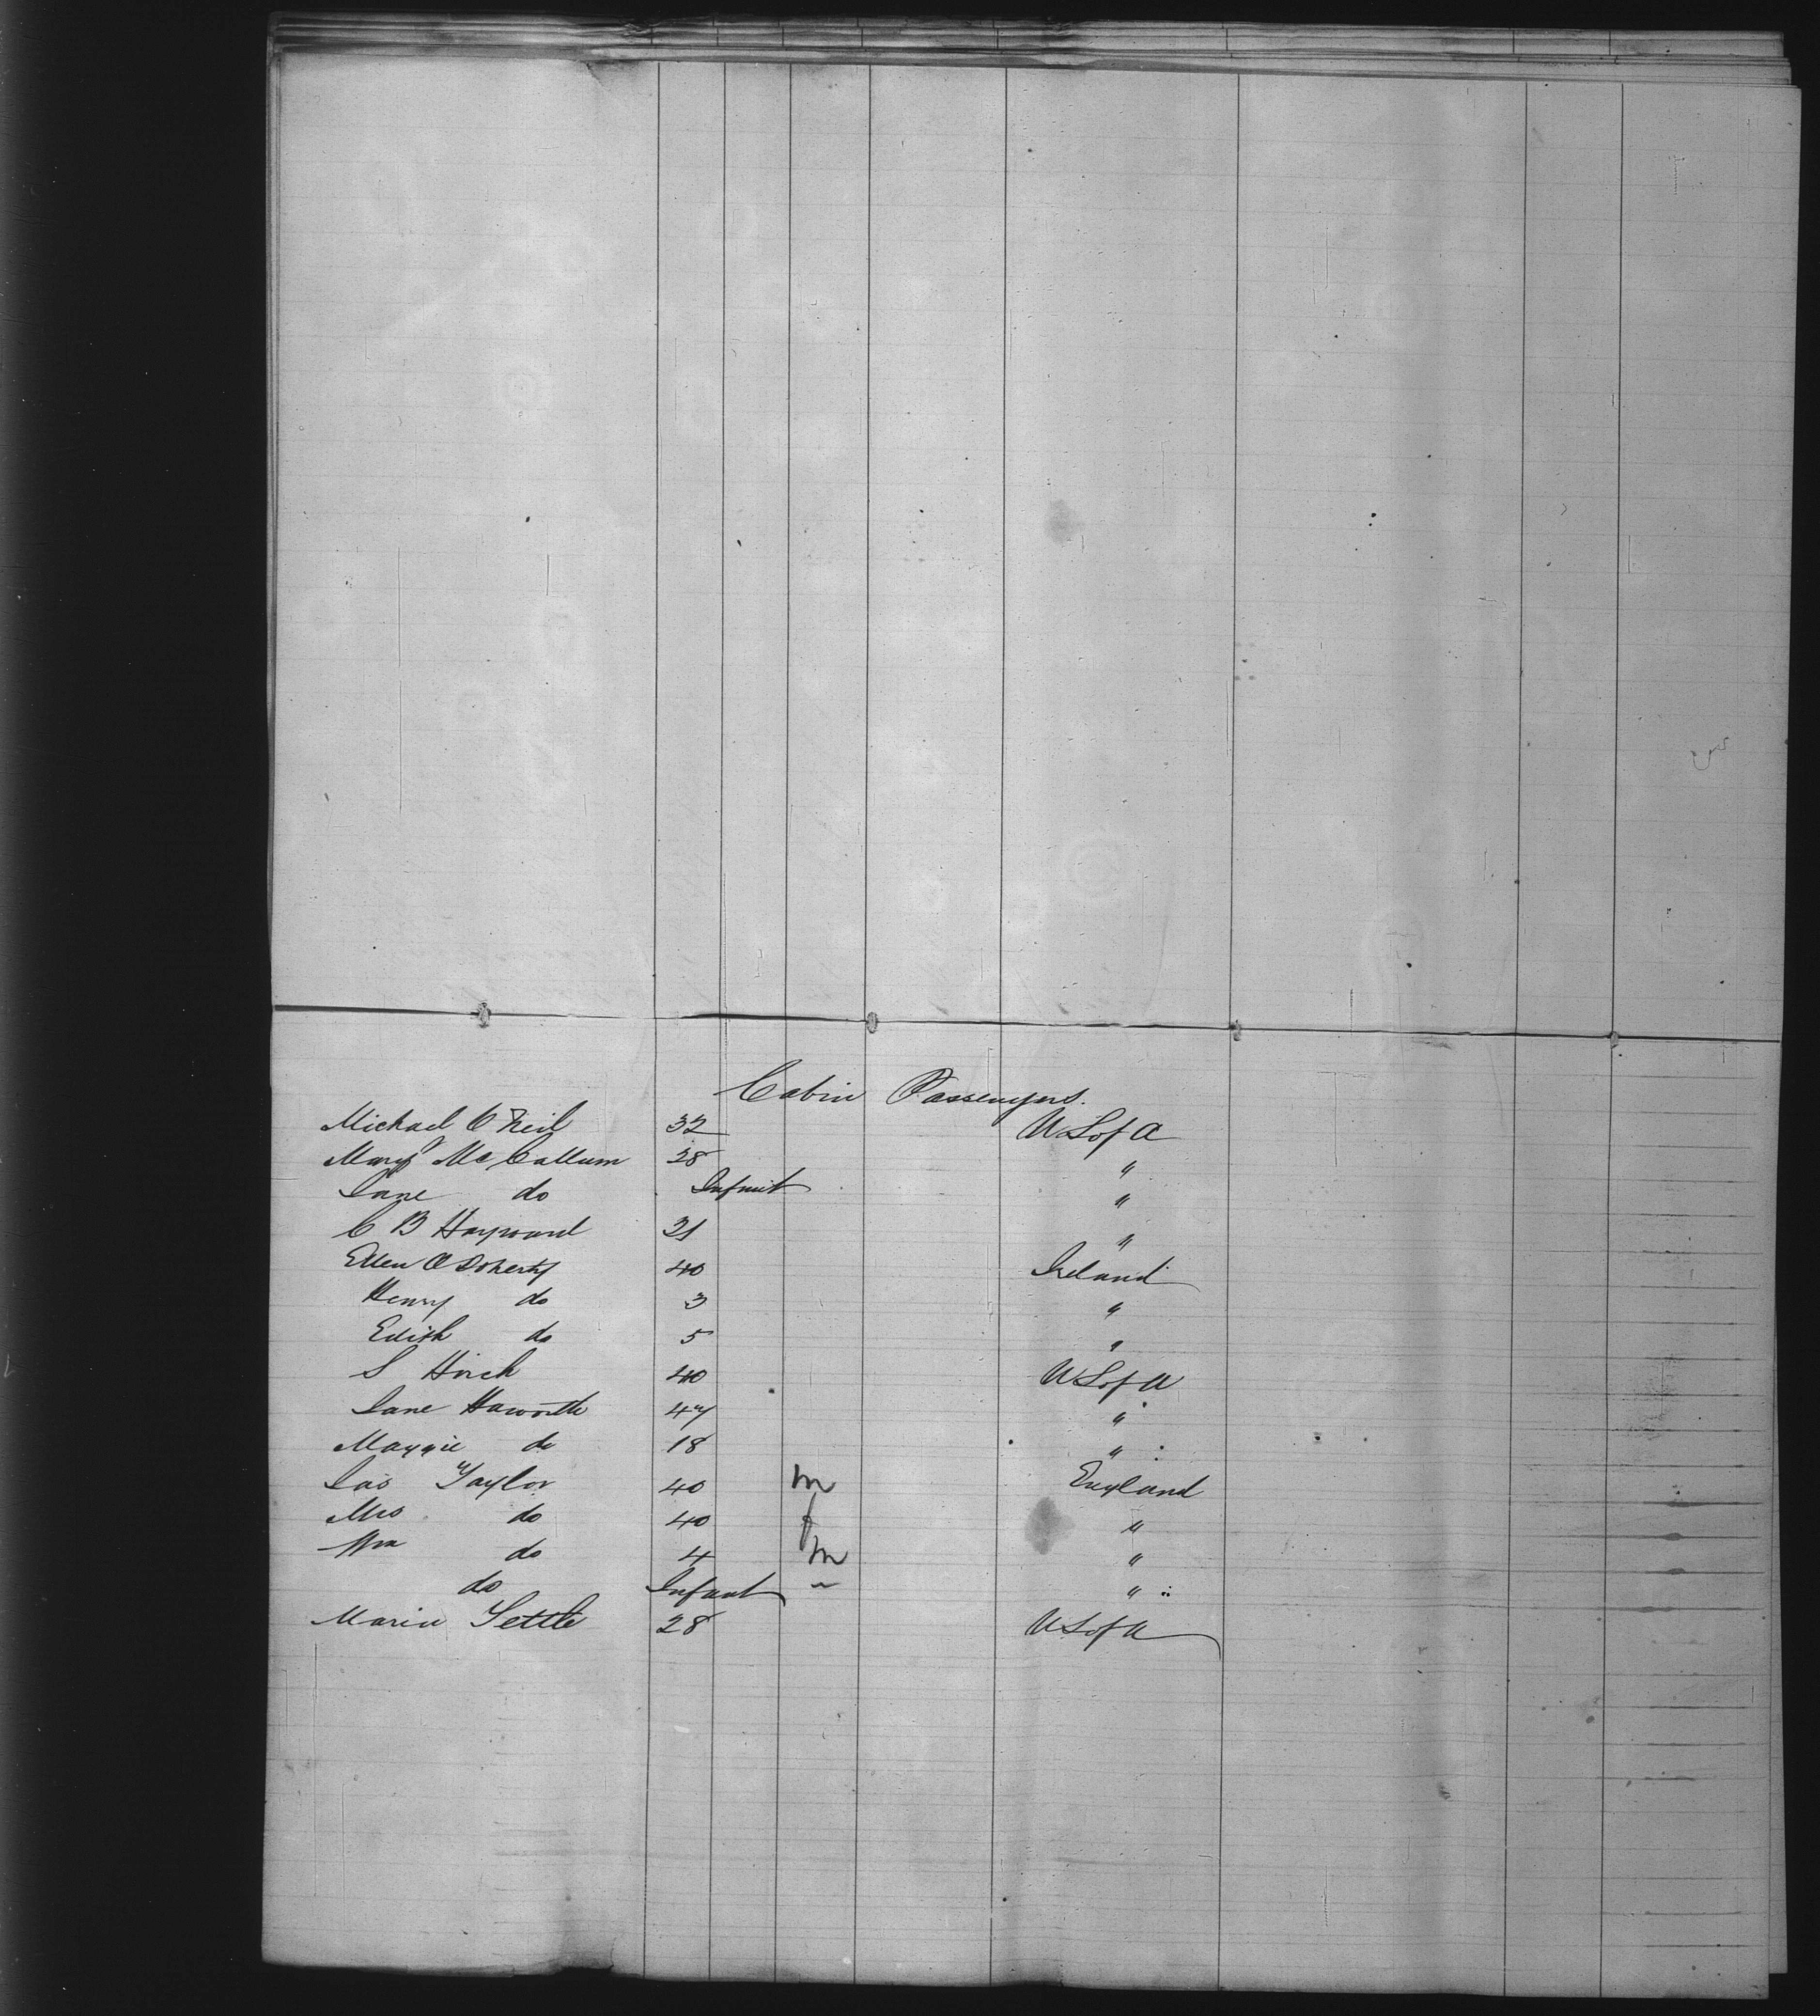 Cabin Passengers.
Michael O'Neil 32 U S of A
Mary McCallum 28 "
Jane do Infant "
C B Hayward 21 "
Ellen O'Doherty 40 Ireland
Henry do 3 "
Edith do 5 "
S Hirch 40 U S of A
Jane Haworth 47 "
Maggie do 18 "
Jas Taylor 40 m England
Mrs do 40 f "
Wm do 4 m "
do Infant "
Maria Settle 28 U S of A